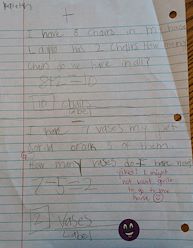 I have 8 chairs in my house
Lappo has 2 chairs How many
chairs do we have in all?
8+2=10
10 chairs
Label
I have 7 vases my pet
broke 5 of them
How many vases do I have now
Yikes! I might
not want
to go to your
house
7-5=2
2 vases
Label